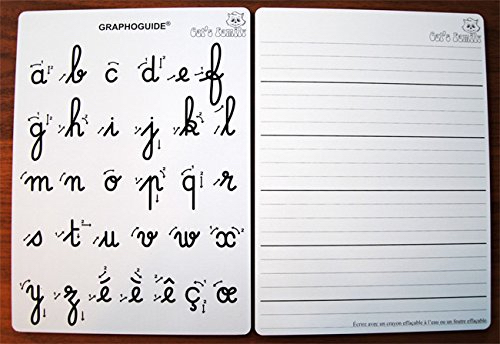 GRAPHOGUIDE®
Cat's Family
a b c d e f
g h i j k l
m n o p q r
s t u v w x
y z é è ê ç œ
Cat's Family
Écrire avec un crayon effaçable à l'eau ou un feutre effaçable